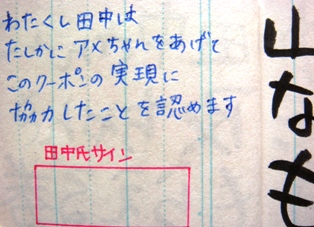 わたくし田中は
たしかにアメちゃんをあげて
このクーポンの実現に
協力したことを認めます
田中氏サイン
なも